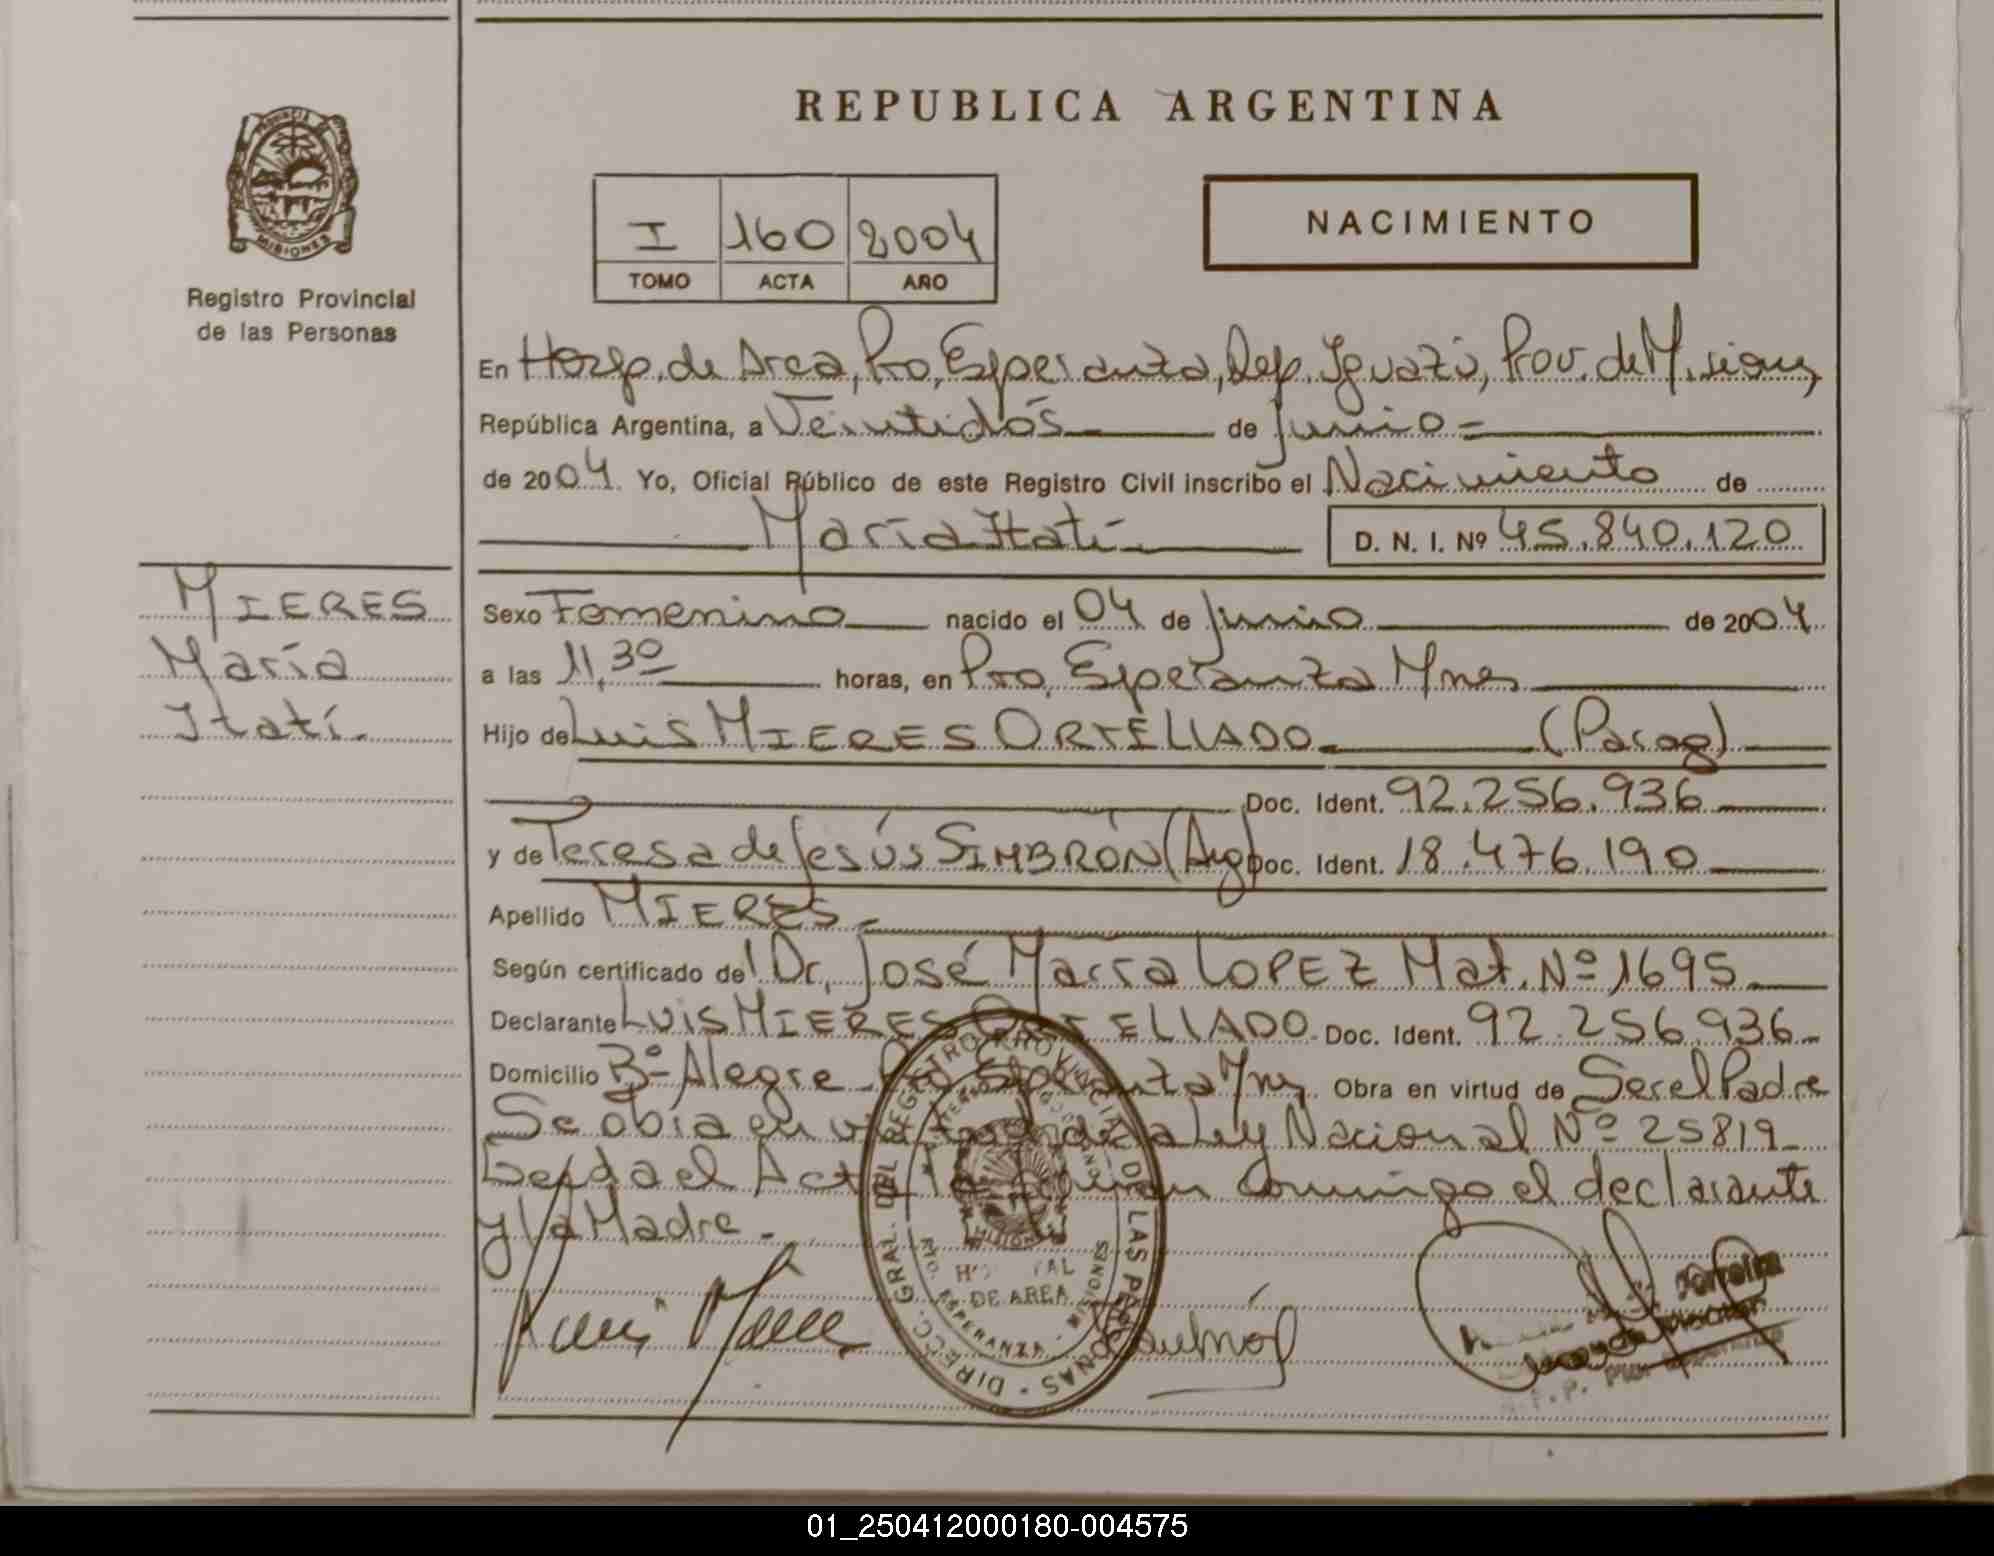 REPUBLICA ARGENTINA
PROVINCIA DE
MISIONES
Registro Provincial
de las Personas
I 160 2004
TOMO ACTA AÑO
NACIMIENTO
En Hosp. de Area, Pto, Esperanza, Dep. Iguazú, Prov. de Misiones
República Argentina, a Veintidós de Junio =
de 2004. Yo, Oficial Público de este Registro Civil inscribo el Nacimiento de
María Itatí D. N. I. Nº 45.840.120
MIERES
María
Itatí.
Sexo Femenino nacido el 04 de Junio de 2004
a las 11,30 horas, en Pto, Esperanza Mnes
Hijo de Luis MIERES ORTELLADO (Parag)
Doc. Ident. 92.256.936
y de Teresa de Jesús SIMBRÓN (Arg) Doc. Ident. 18.476.190
Apellido MIERES
Según certificado del Dr, José María LOPEZ Mat. Nº 1695
Declarante LUIS MIERES ORTELLADO Doc. Ident. 92.256.936
Domicilio Bº Alegre Pto Esperanza Mnes. Obra en virtud de Ser el Padre
Se obra en virtud de la Ley Nacional Nº 25819
Leída el Acta la firman conmigo el declarante
y la Madre.
DIRECC. GRAL. DEL REGISTRO PROVINCIAL DE LAS PERSONAS
MISIONES
HOSPITAL
DE AREA
PTO. ESPERANZA - MISIONES
Ferreira
01_250412000180-004575